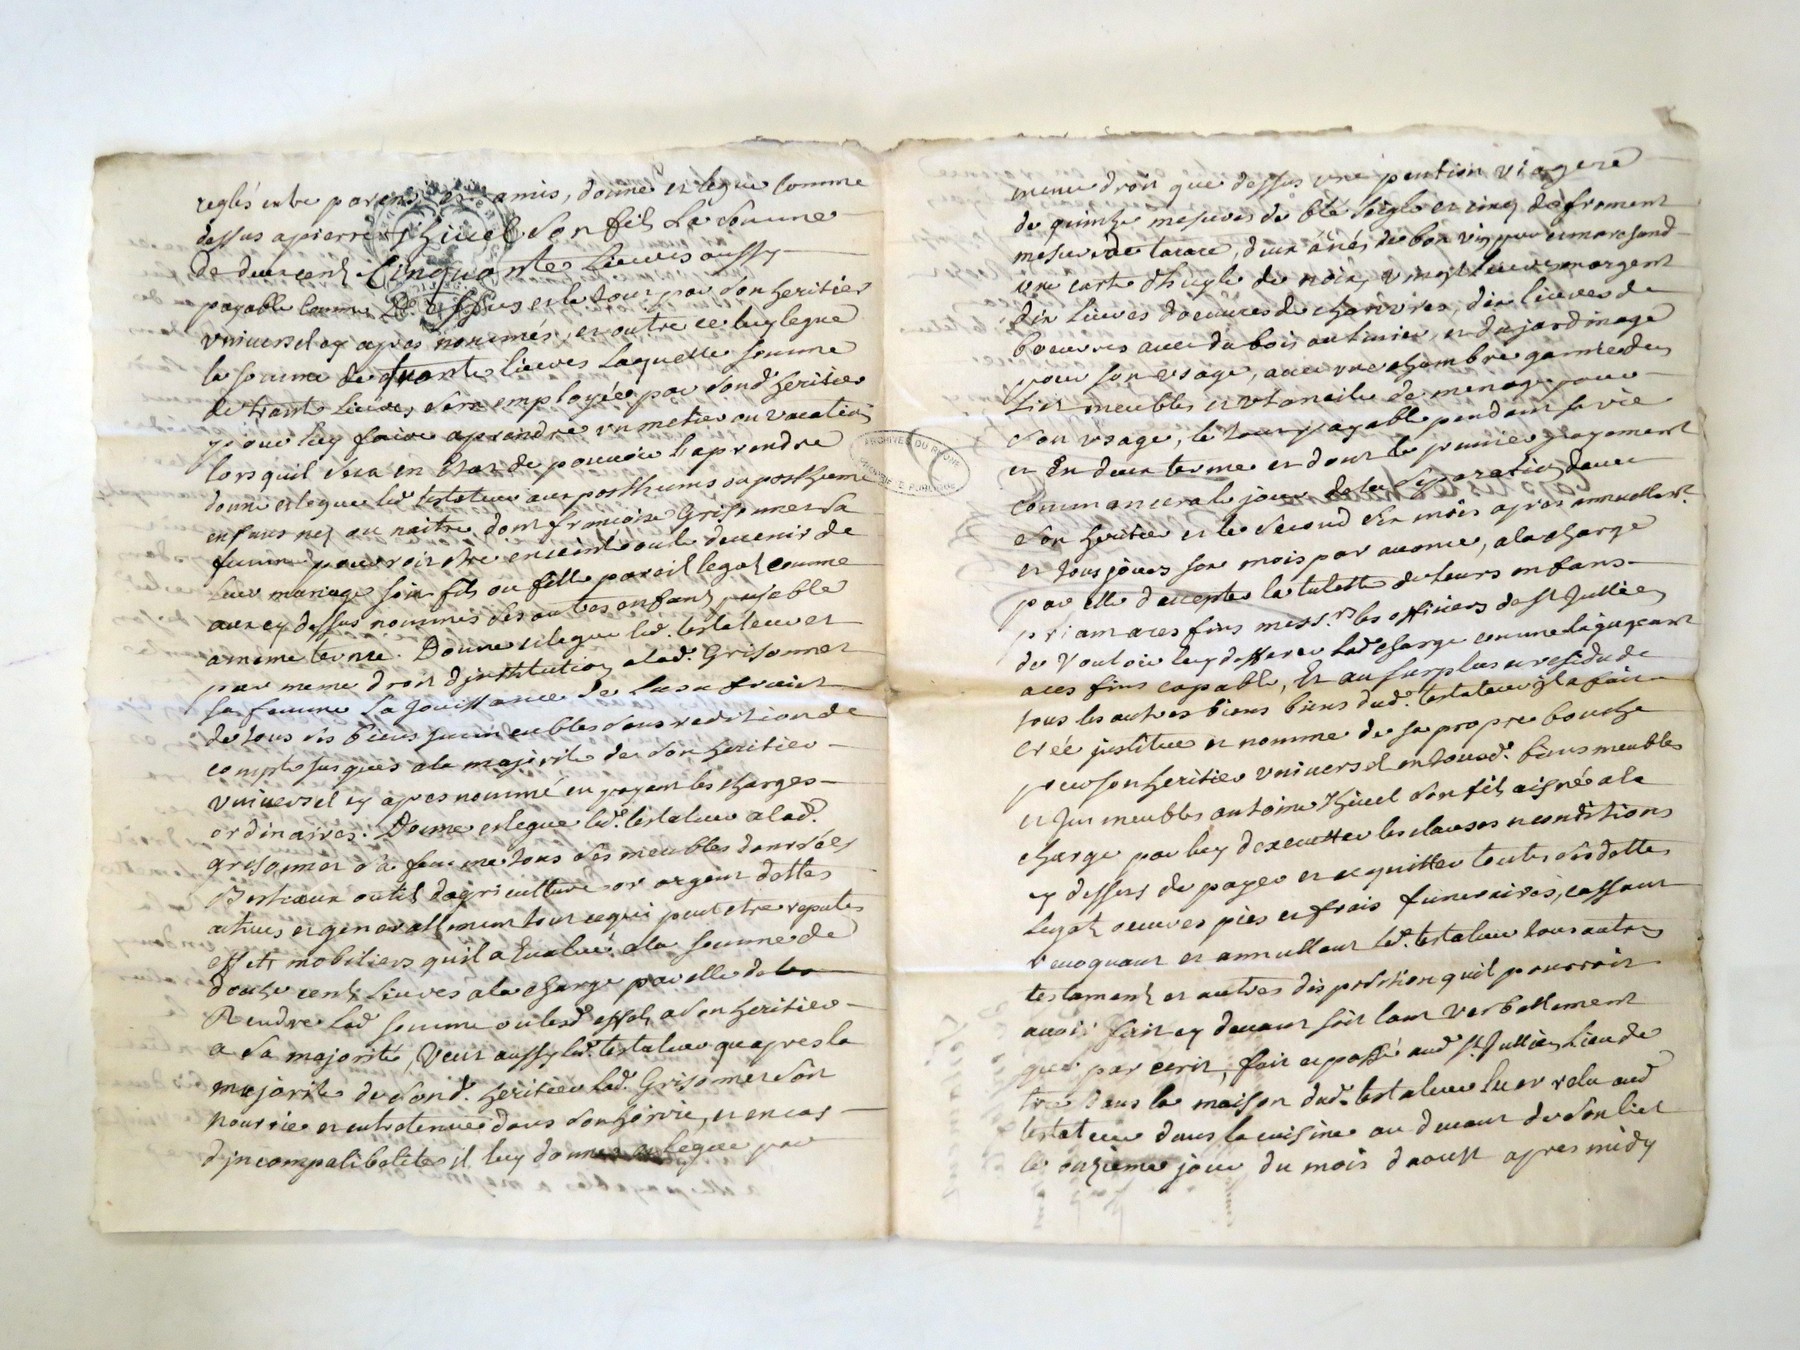 reglés entre parens et amis, donne et legue comme
dessus a pierre Thivel son fils la somme
de deux cent Cinquante Livres aussy
payable comme De dessus et le tout par son heritier
universel cy apres nommés, et outre ce luy legue
la somme de trante livres laquelle somme
de trante livres sera employée par sond. heritier
pour luy faire aprendre un metier ou vacation
lorsquil sera en Etat de pouvoir laprendre
donne et legue led. testateur aux posthume ou posthumes
enfans nez ou naitre dont francoise Grisonnet sa
femme pourroit etre enceinte ou le devenir de
leur mariage soit fils ou fille pareil legat comme
aux cy dessus nommés ses autres enfans payable
a meme terme. Donne et legue led. testateur et
par meme droit d'institution a lad. Grisonnet
sa femme La Jouissance de Lusufruit
de tous ses biens immeubles sans redition de
compte jusques a la majorité de son heritier
universel cy apres nommé en payant les charges
ordinaires. Donne et legue led. testateur a lad.
grisonnet sa femme tous ses meubles danrrées
Bestiaux outils dagriculture or argent dettes
actives et generallement tout ce qui peut etre reputé
effets mobiliers quil a Evalué a la somme de
douze cents Livres a la charge par elle de
Rendre lad. somme ou lesd. effets a son heritier
a sa majorité, Veut aussy led. testateur quapres la
majorité de sond. heritier lad. Grisonnet soit
nourrie et entretenue dans son hoirie, et en cas
d'incompatibilité il luy donne et legue par
meme droit que dessus une pention viagere
de quinze mesures de blé soigle et cinq de froment
mesure de tarare, deux anés de bon vin pur et marchand
une carte d'huille de noix, vingt livres en argent
dix livres doeuvres de chanvres, dix livres de
beurres avec du bois a lumer, et du jardinage
pour son usage, avec une chambre garnie de
lit meubles et utancile de menage pour
son usage, le tout payable pendant sa vie
et En deux terme et dont le premier payement
commancera le jour de la separation davec
son heritier et le second six mois apres annuellemt.
et toujours six mois par avance, a la charge
par elle daccepter la tutelle de leurs enfans
priant a ces fins mess.rs les officiers de St Jullien
de Vouloir luy defferer lad. charge comme la jugeant
a ces fins capable, Et au surplus et residu de
tous les autres biens dud. testateur il a fait
créé institue et nomme de sa propre bouche
pour son heritier universel en tousd. biens meubles
et Immeubles antoine Thivel son fils aisné a la
charge par luy dexecutter les clauses et conditions
cy dessus de payer et acquitter toutes ses dettes
legats oeuvres pies et frais funeraires, cassant
revoquant et annullant led. testateur tous autres
testaments et autres disposition quil pourroit
avoir fait cy devant soit tant verballement
que par ecrit, fait et passé aud. St. Jullien lieu de
tré dans la maison dud. testateur lu et relu aud.
testateur dans la cuisine au devant de son lit
le onzieme jour du mois daoust apres midy
ARCHIVES DU RHONE